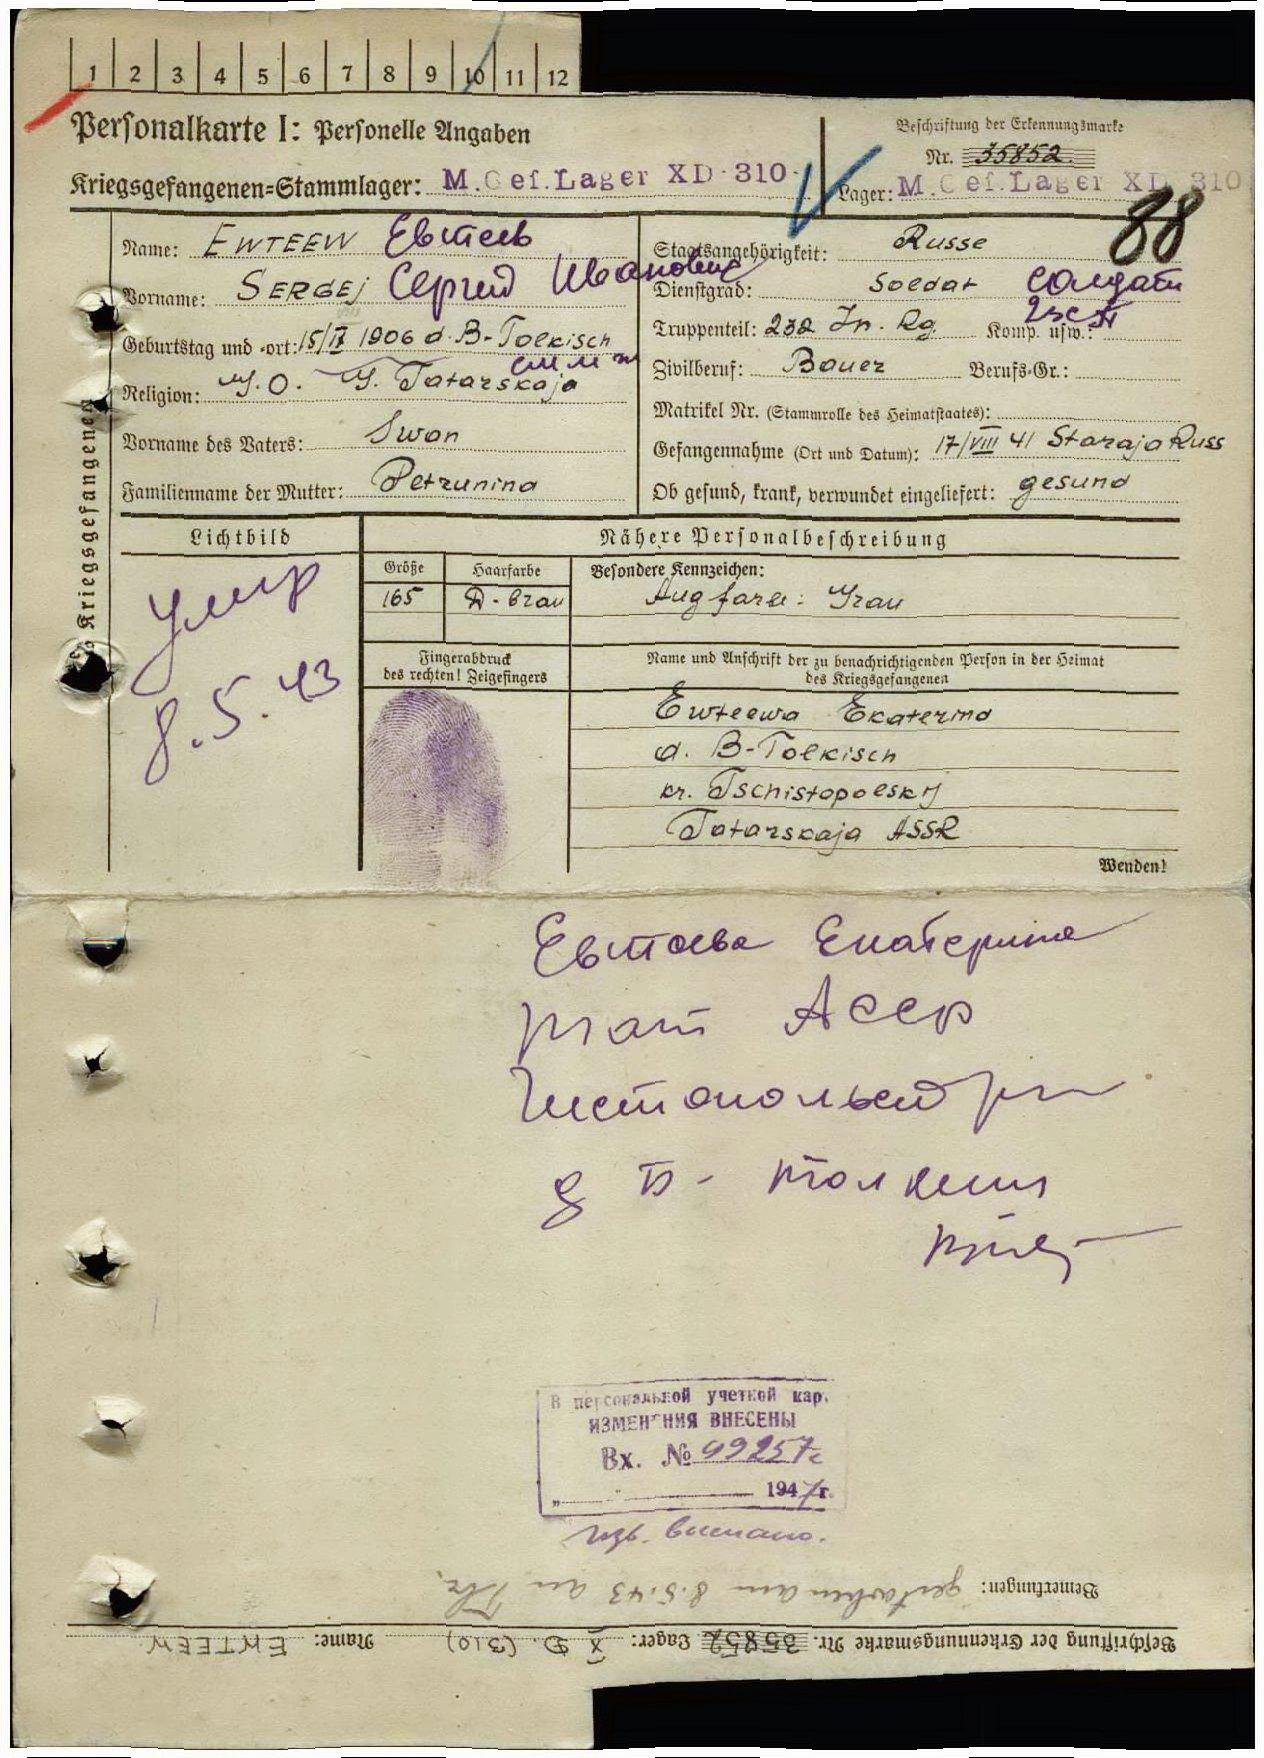 1 2 3 4 5 6 7 8 9 10 11 12
Personalkarte I: Personelle Angaben
Beschriftung der Erkennungsmarke
Nr. 35852
Kriegsgefangenen-Stammlager: M.Gef.Lager XD 310
Lager: M.Gef.Lager XD 310
88
Name: EWTEEW Евтеев
Staatsangehörigkeit: Russe
Vorname: SERGEJ Сергей Иванович
Dienstgrad: Soldat солдат
Geburtstag und -ort: 15/IV 1906 d. B-Tolkisch
Truppenteil: 232 In. Rg. Komp. usw.:
Religion: Tatarskaja
Zivilberuf: Bauer Berufs-Gr.:
Matrikel Nr. (Stammrolle des Heimatstaates):
Vorname des Vaters: Iwan
Gefangennahme (Ort und Datum): 17/VIII 41 Staraja Russ
Familienname der Mutter: Petrunina
Ob gesund, krank, verwundet eingeliefert: gesund
des Kriegsgefangenen
Lichtbild
Nähere Personalbeschreibung
Größe Haarfarbe Besondere Kennzeichen:
165 D-brau Augfarbe: Grau
Умер
8.5.43
Fingerabdruck
des rechten! Zeigefingers
Name und Anschrift der zu benachrichtigenden Person in der Heimat
des Kriegsgefangenen
Ewteewa Ekaterina
d. B-Tolkisch
kr. Tschistopolskij
Tatarskaja ASSR
Wenden!
Евтеева Екатерина
Тат АССР
Чистопольский р-н
д Б- Толкиш
В персональной учетной кар.
ИЗМЕНЕНИЯ ВНЕСЕНЫ
Вх. № 49257с
„ " 1947г.
Bemerkungen: gestorben am 8.5.43 an Tbc.
Beschriftung der Erkennungsmarke Nr. 35852 Lager: X D. (310) Name: EWTEEW